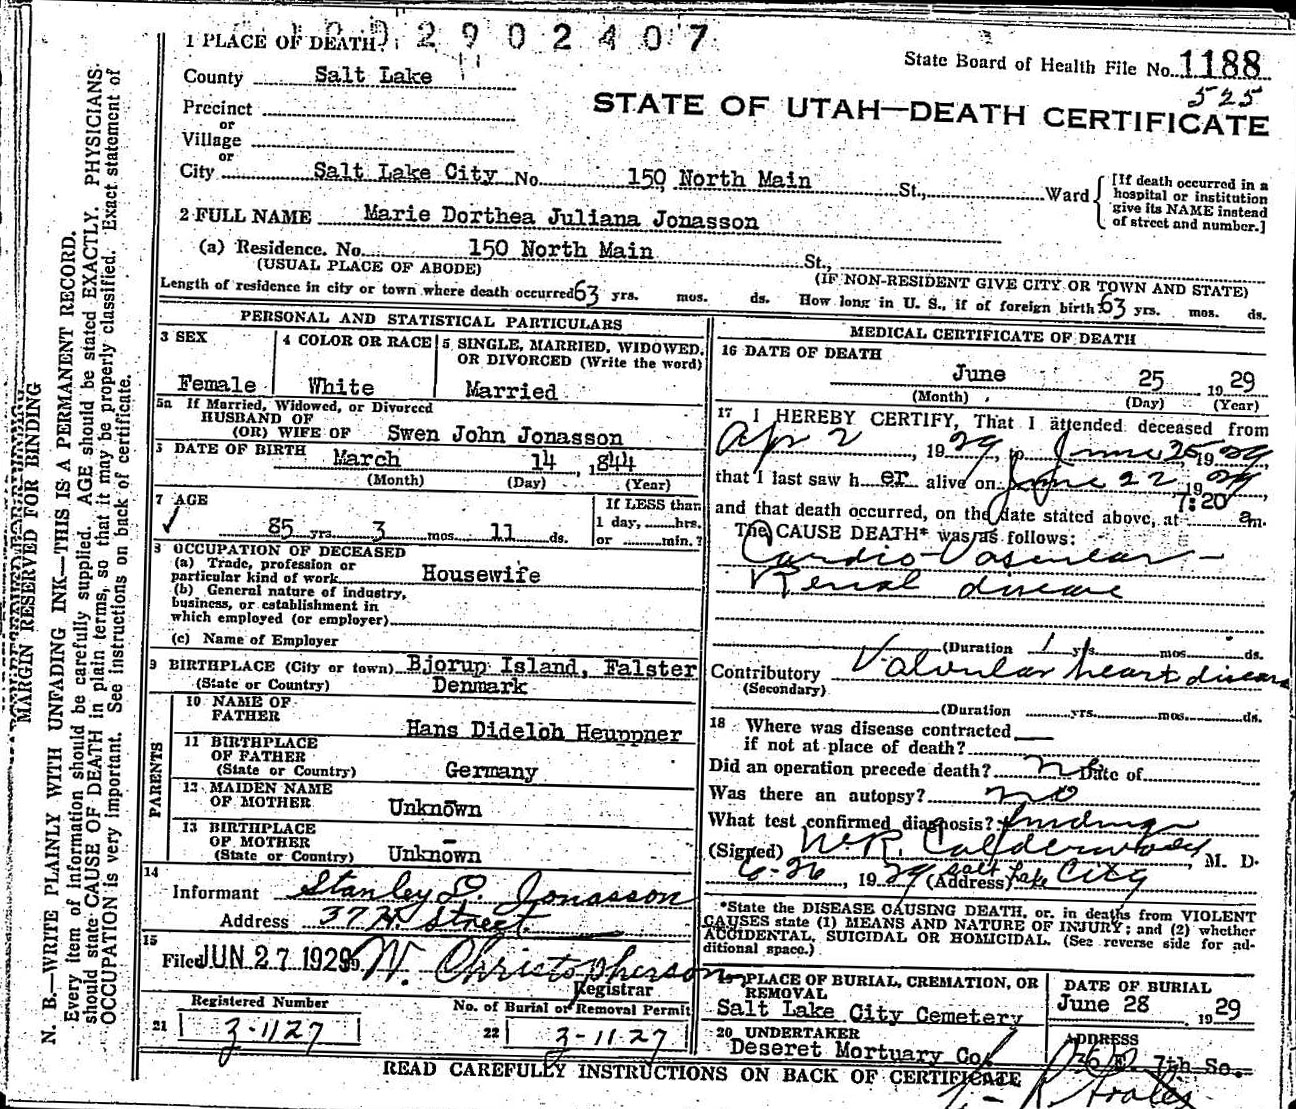 1002902407
1 PLACE OF DEATH
State Board of Health File No. 1188
525
County Salt Lake
STATE OF UTAH—DEATH CERTIFICATE
Precinct
or
Village
or
City Salt Lake City No. 150 North Main St., Ward
[If death occurred in a
hospital or institution
give its NAME instead
of street and number.]
2 FULL NAME Marie Dorthea Juliana Jonasson
(a) Residence. No. 150 North Main St.,
(USUAL PLACE OF ABODE) (IF NON-RESIDENT GIVE CITY OR TOWN AND STATE)
Length of residence in city or town where death occurred 63 yrs. mos. ds. How long in U. S., if of foreign birth 63 yrs. mos. ds.
PERSONAL AND STATISTICAL PARTICULARS
3 SEX
Female
4 COLOR OR RACE
White
5 SINGLE, MARRIED, WIDOWED,
OR DIVORCED (Write the word)
Married
5a If Married, Widowed, or Divorced
HUSBAND OF
(OR) WIFE OF Swen John Jonasson
6 DATE OF BIRTH March 14, 1844
(Month) (Day) (Year)
7 AGE
85 yrs. 3 mos. 11 ds.
If LESS than
1 day, hrs.
or min.?
8 OCCUPATION OF DECEASED
(a) Trade, profession or
particular kind of work Housewife
(b) General nature of industry,
business, or establishment in
which employed (or employer)
(c) Name of Employer
9 BIRTHPLACE (City or town) Bjorup Island, Falster
(State or Country) Denmark
PARENTS
10 NAME OF
FATHER
Hans Dideloh Heuppner
11 BIRTHPLACE
OF FATHER
(State or Country) Germany
12 MAIDEN NAME
OF MOTHER Unknown
13 BIRTHPLACE
OF MOTHER
(State or Country) Unknown
14
Informant Stanley D. Jonasson
Address 37 H. Street.
15
Filed JUN 27 1929 W. Christopherson
Registrar
Registered Number
21 3-1127
No. of Burial or Removal Permit
22 3-1127
MEDICAL CERTIFICATE OF DEATH
16 DATE OF DEATH
June 25 1929
(Month) (Day) (Year)
17 I HEREBY CERTIFY, That I attended deceased from
Apr 2, 1929, to June 25 1929
that I last saw h er alive on June 22 1929,
and that death occurred, on the date stated above, at 7:20 am.
The CAUSE DEATH* was as follows:
Cardio-Vascular-
Renal disease
(Duration 1 yrs. mos. ds.
Contributory Valvular heart disease
(Secondary)
(Duration yrs. mos. ds.
18 Where was disease contracted
if not at place of death?
Did an operation precede death? no Date of
Was there an autopsy? no
What test confirmed diagnosis? findings
(Signed) W.R. Calderwood, M. D.
6-26, 1929 (Address) Salt Lake City
*State the DISEASE CAUSING DEATH, or, in deaths from VIOLENT
CAUSES state (1) MEANS AND NATURE OF INJURY; and (2) whether
ACCIDENTAL, SUICIDAL OR HOMICIDAL. (See reverse side for ad-
ditional space.)
19 PLACE OF BURIAL, CREMATION, OR
REMOVAL
Salt Lake City Cemetery
DATE OF BURIAL
June 28, 1929
20 UNDERTAKER
Deseret Mortuary Co.
ADDRESS
36 E. 7th So.
READ CAREFULLY INSTRUCTIONS ON BACK OF CERTIFICATE
MARGIN RESERVED FOR BINDING
N. B.—WRITE PLAINLY WITH UNFADING INK—THIS IS A PERMANENT RECORD.
Every item of information should be carefully supplied. AGE should be stated EXACTLY. PHYSICIANS
should state CAUSE OF DEATH in plain terms, so that it may be properly classified. Exact statement of
OCCUPATION is very important. See instructions on back of certificate.